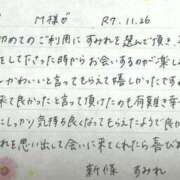 M様が R7.11.26
初めてのご利用にすみれを選んで頂き、
をしてたった時からお会いするのが楽し
かわいいと言ってもらえて嬉しかったです
来て良かったと言って頂けたのも有難き幸
にしっかり気持ち良くなってもらえたようで良か
れを思い出して会いに来てくれたら喜び
新條 すみれ